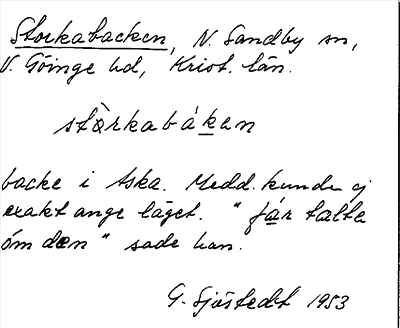 Storkabacken, N. Sandby sn,
V. Göinge hd, Krist. län.
stòrkabáken
backe i Aska. Medd. kunde ej
exakt ange läget. " fár talte
óm den " sade han.
G. Sjöstedt 1953